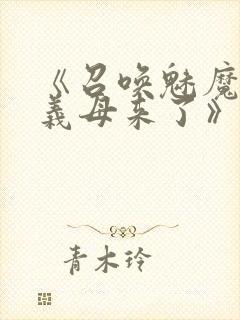 《召唤魅魔
義母来了》
青木玲